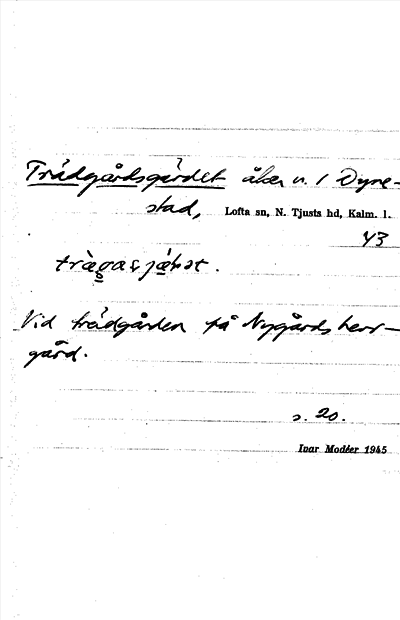 Trädgårdsgärdet åker n. 1 Dyne-
stad, Lofta sn, N. Tjusts hd, Kalm. l.
43
Vid trädgården på Nygårds herr-
gård.
s. 20.
Ivar Modéer 1945